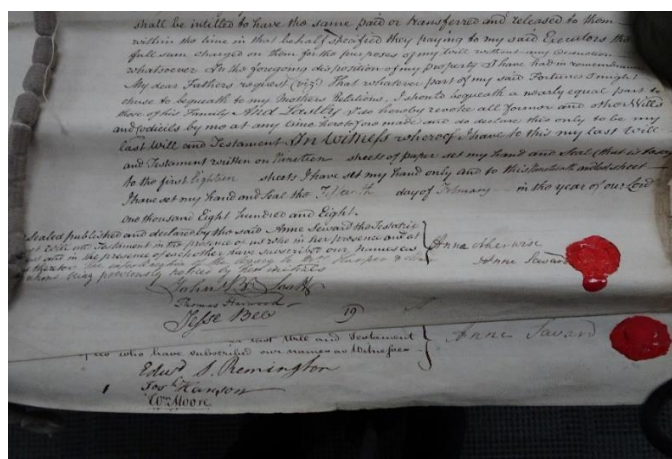 shall be intitled to have the same paid or transferred and released to them
within the time in that behalf specified they paying to my said Executors the
full sum charged on them for the purposes of my Will without any deduction
whatsoever. In the foregoing disposition of my property I have had in remembrance
My dear Fathers request (viz) That whatever part of my said Fortunes I might
chuse to bequeath to my Mothers Relations, I should bequeath a nearly equal part to
those of his Family And Lastly I do hereby revoke all former and other Wills
and Codicils by me at any time heretofore made and do declare this only to be my
last Will and Testament In Witness whereof I have to this my last Will
and Testament written on Nineteen sheets of paper set my hand and seal (that is to say)
to the first Eighteen sheets I have set my hand only and to this Nineteenth and last sheet
I have set my hand and seal the Fifteenth day of February in the year of our Lord
one thousand Eight hundred and Eight.
Sealed published and declared by the said Anne Seward the Testatrix
Will and Testament in the presence of us who in her presence and at
and in the presence of each other have subscribed our names as
being previously noticed by
Anne Seward
Thomas Harwood
Jesse Bee
19
last Will and Testament
who have subscribed our names as Witnesses
Anne Seward
Edwd. S. Remington
Josh. Hanson
Wm Moore